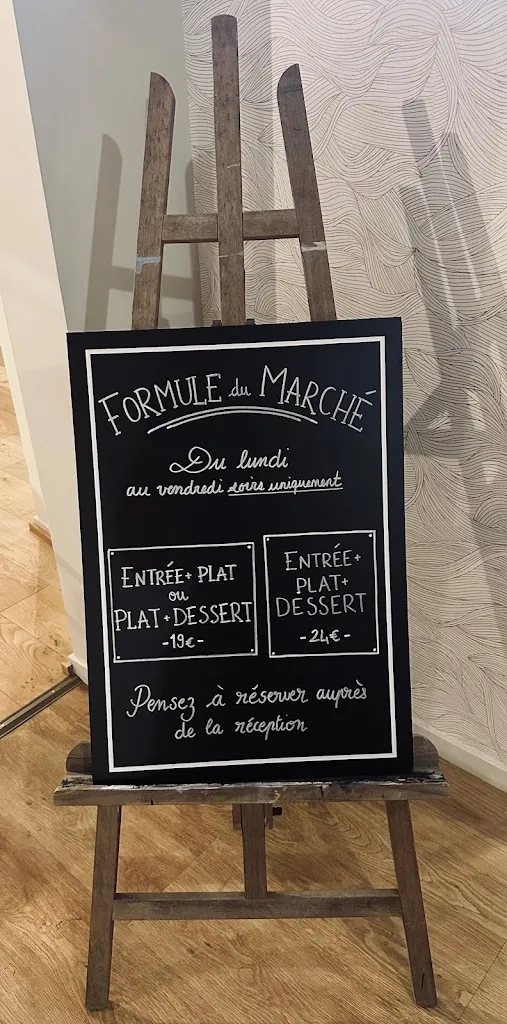 FORMULE du MARCHÉ
Du lundi
au vendredi soirs uniquement
ENTRÉE+ PLAT
ou
PLAT+DESSERT
-19€-
ENTRÉE+
PLAT+
DESSERT
-24€-
Pensez à réserver auprès
de la réception